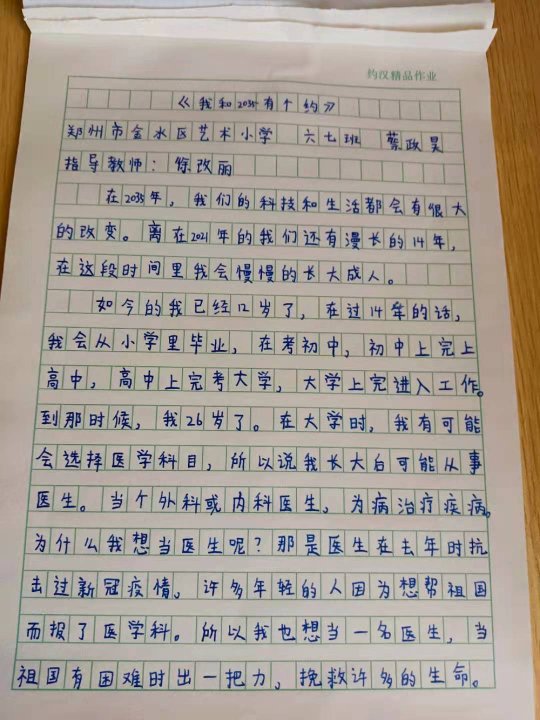 约汉精品作业
《我和2035有个约》
郑州市金水区艺术小学 六七班 蔡政昊
指导教师：徐改丽
在2035年，我们的科技和生活都会有很大
的改变。离在2021年的我们还有漫长的14年，
在这段时间里我会慢慢的长大成人。
如今的我已经12岁了，在过14年的话，
我会从小学里毕业，在考初中，初中上完上
高中，高中上完考大学，大学上完进入工作。
到那时候，我26岁了。在大学时，我有可能
会选择医学科目，所以说我长大后可能从事
医生。当个外科或内科医生，为病治疗疾病。
为什么我想当医生呢？那是医生在去年时抗
击过新冠疫情，许多年轻的人因为想帮祖国
而报了医学科。所以我也想当一名医生，当
祖国有困难时出一把力，挽救许多的生命。